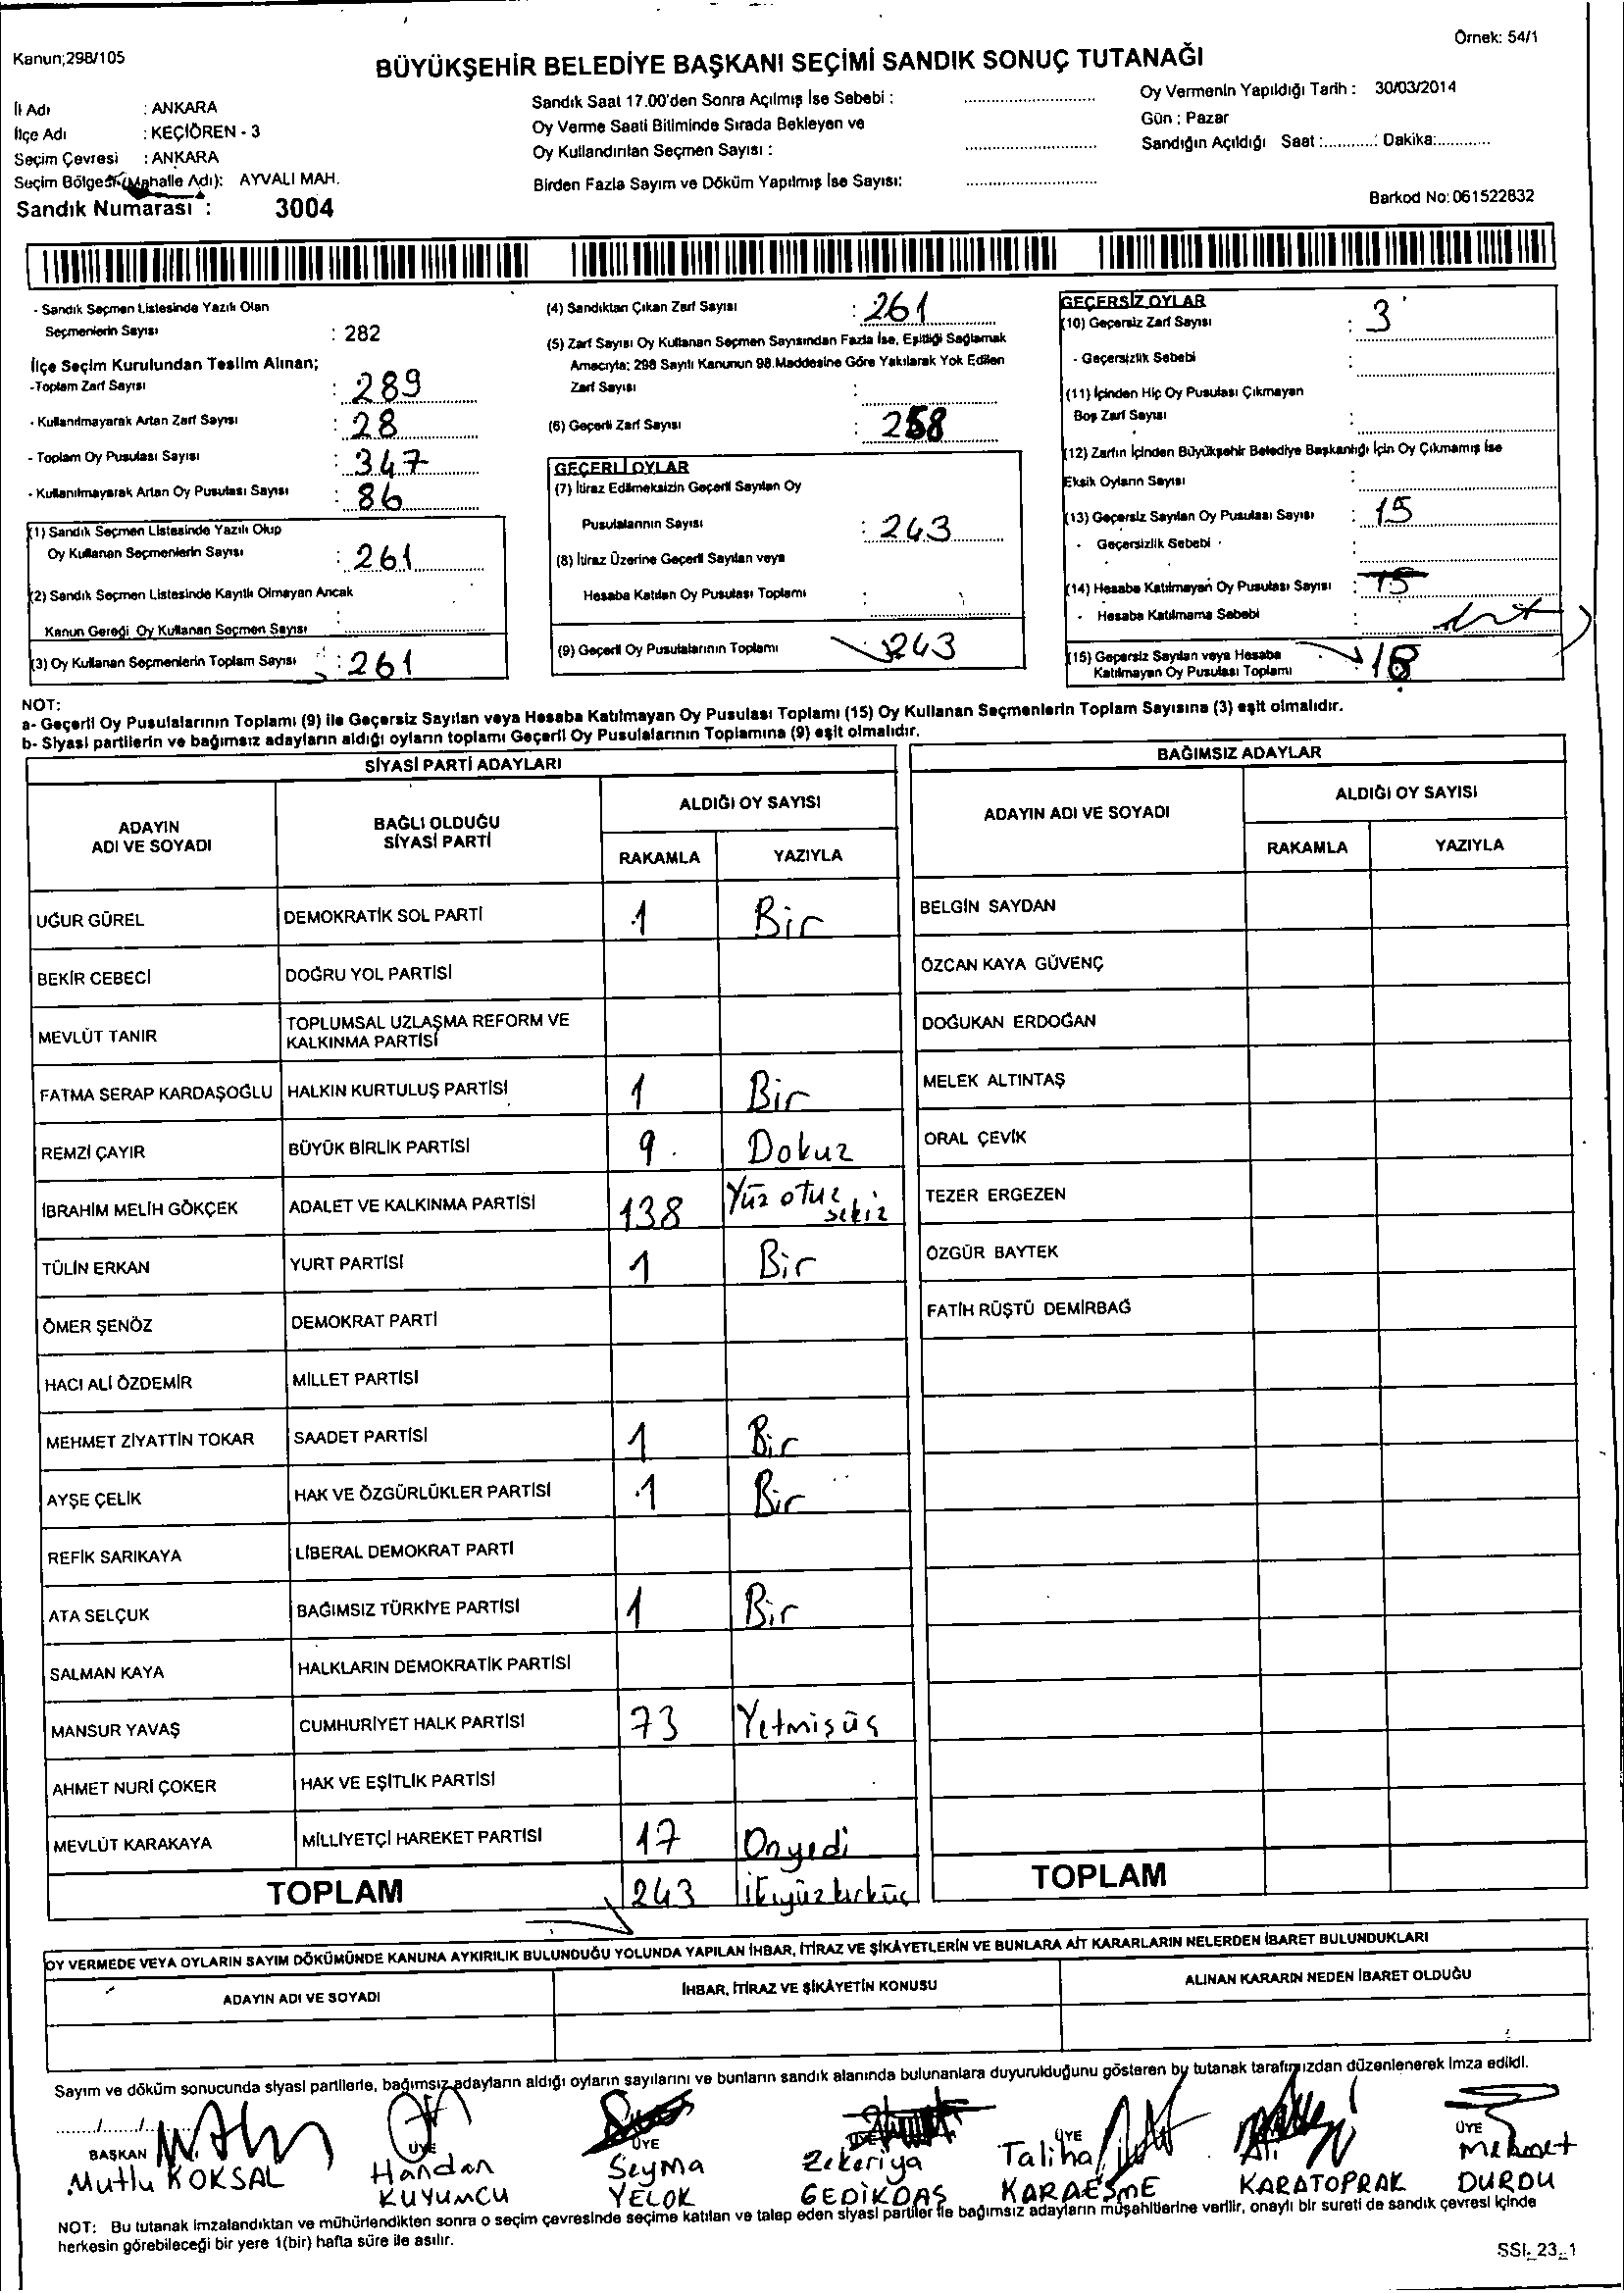 Örnek: 54/1
Kanun;298/105
BÜYÜKŞEHİR BELEDİYE BAŞKANI SEÇİMİ SANDIK SONUÇ TUTANAĞI
İl Adı : ANKARA
İlçe Adı : KEÇİÖREN - 3
Seçim Çevresi : ANKARA
Seçim Bölgesi (Mahalle Adı): AYVALI MAH.
Sandık Numarası : 3004
Sandık Saat 17.00'den Sonra Açılmış İse Sebebi : ................
Oy Verme Saati Bitiminde Sırada Bekleyen ve
Oy Kullandırılan Seçmen Sayısı : ................
Birden Fazla Sayım ve Döküm Yapılmış İse Sayısı: ................
Oy Vermenin Yapıldığı Tarih : 30/03/2014
Gün : Pazar
Sandığın Açıldığı Saat :...........: Dakika:............
Barkod No: 061522832
- Sandık Seçmen Listesinde Yazılı Olan
Seçmenlerin Sayısı : 282
İlçe Seçim Kurulundan Teslim Alınan;
-Toplam Zarf Sayısı : 289
- Kullanılmayarak Artan Zarf Sayısı : 28
- Toplam Oy Pusulası Sayısı : 347
- Kullanılmayarak Artan Oy Pusulası Sayısı : 86
(1) Sandık Seçmen Listesinde Yazılı Olup
Oy Kullanan Seçmenlerin Sayısı : 261
(2) Sandık Seçmen Listesinde Kayıtlı Olmayan Ancak
Kanun Gereği Oy Kullanan Seçmen Sayısı :
(3) Oy Kullanan Seçmenlerin Toplam Sayısı : 261
(4) Sandıktan Çıkan Zarf Sayısı : 261
(5) Zarf Sayısı Oy Kullanan Seçmen Sayısından Fazla İse, Eşitliği Sağlamak
Amacıyla; 298 Sayılı Kanunun 98.Maddesine Göre Yakılarak Yok Edilen
Zarf Sayısı :
(6) Geçerli Zarf Sayısı : 258
GEÇERLİ OYLAR
(7) İtiraz Edilmeksizin Geçerli Sayılan Oy
Pusulalarının Sayısı : 243
(8) İtiraz Üzerine Geçerli Sayılan veya
Hesaba Katılan Oy Pusulası Toplamı :
(9) Geçerli Oy Pusulalarının Toplamı : 243
GEÇERSİZ OYLAR
(10) Geçersiz Zarf Sayısı : 3
- Geçersizlik Sebebi :
(11) İçinden Hiç Oy Pusulası Çıkmayan
Boş Zarf Sayısı :
(12) Zarfın İçinden Büyükşehir Belediye Başkanlığı İçin Oy Çıkmamış İse
Eksik Oyların Sayısı :
(13) Geçersiz Sayılan Oy Pusulası Sayısı : 15
- Geçersizlik Sebebi :
(14) Hesaba Katılmayan Oy Pusulası Sayısı : 15
- Hesaba Katılmama Sebebi :
(15) Geçersiz Sayılan veya Hesaba
Katılmayan Oy Pusulası Toplamı 18
NOT:
a- Geçerli Oy Pusulalarının Toplamı (9) ile Geçersiz Sayılan veya Hesaba Katılmayan Oy Pusulası Toplamı (15) Oy Kullanan Seçmenlerin Toplam Sayısına (3) eşit olmalıdır.
b- Siyasi partilerin ve bağımsız adayların aldığı oyların toplamı Geçerli Oy Pusulalarının Toplamına (9) eşit olmalıdır.
SİYASİ PARTİ ADAYLARI
ADAYIN ADI VE SOYADI BAĞLI OLDUĞU SİYASİ PARTİ ALDIĞI OY SAYISI
RAKAMLA YAZIYLA
UĞUR GÜREL DEMOKRATİK SOL PARTİ 1 Bir
BEKİR CEBECİ DOĞRU YOL PARTİSİ
MEVLÜT TANIR TOPLUMSAL UZLAŞMA REFORM VE KALKINMA PARTİSİ
FATMA SERAP KARDAŞOĞLU HALKIN KURTULUŞ PARTİSİ 1 Bir
REMZİ ÇAYIR BÜYÜK BİRLİK PARTİSİ 9 Dokuz
İBRAHİM MELİH GÖKÇEK ADALET VE KALKINMA PARTİSİ 138 Yüz otuz sekiz
TÜLİN ERKAN YURT PARTİSİ 1 Bir
ÖMER ŞENÖZ DEMOKRAT PARTİ
HACI ALİ ÖZDEMİR MİLLET PARTİSİ
MEHMET ZİYATTİN TOKAR SAADET PARTİSİ 1 Bir
AYŞE ÇELİK HAK VE ÖZGÜRLÜKLER PARTİSİ 1 Bir
REFİK SARIKAYA LİBERAL DEMOKRAT PARTİ
ATA SELÇUK BAĞIMSIZ TÜRKİYE PARTİSİ 1 Bir
SALMAN KAYA HALKLARIN DEMOKRATİK PARTİSİ
MANSUR YAVAŞ CUMHURİYET HALK PARTİSİ 73 Yetmişüç
AHMET NURİ ÇOKER HAK VE EŞİTLİK PARTİSİ
MEVLÜT KARAKAYA MİLLİYETÇİ HAREKET PARTİSİ 17 Onyedi
TOPLAM 243 ikiyüz kırküç
BAĞIMSIZ ADAYLAR
ADAYIN ADI VE SOYADI ALDIĞI OY SAYISI
RAKAMLA YAZIYLA
BELGİN SAYDAN
ÖZCAN KAYA GÜVENÇ
DOĞUKAN ERDOĞAN
MELEK ALTINTAŞ
ORAL ÇEVİK
TEZER ERGEZEN
ÖZGÜR BAYTEK
FATİH RÜŞTÜ DEMİRBAĞ
TOPLAM
OY VERMEDE VEYA OYLARIN SAYIM DÖKÜMÜNDE KANUNA AYKIRILIK BULUNDUĞU YOLUNDA YAPILAN İHBAR, İTİRAZ VE ŞİKÂYETLERİN VE BUNLARA AİT KARARLARIN NELERDEN İBARET BULUNDUKLARI
ADAYIN ADI VE SOYADI İHBAR, İTİRAZ VE ŞİKÂYETİN KONUSU ALINAN KARARIN NEDEN İBARET OLDUĞU
Sayım ve döküm sonucunda siyasi partilerle, bağımsız adayların aldığı oyların sayılarını ve bunların sandık alanında bulunanlara duyurulduğunu gösteren bu tutanak tarafımızdan düzenlenerek imza edildi.
....../....../
BAŞKAN ÜYE ÜYE ÜYE ÜYE ÜYE
Mutlu KOKSAL Handan KUYUMCU Seyma YELOK Zekeriya GEDİKDAŞ Taliha KARAESME Ali KARATOPRAK Mehmet DURDU
NOT: Bu tutanak imzalandıktan ve mühürlendikten sonra o seçim çevresinde seçime katılan ve talep eden siyasi partiler ile bağımsız adayların müşahitlerine verilir, onaylı bir sureti de sandık çevresi içinde
herkesin görebileceği bir yere 1(bir) hafta süre ile asılır.
SSI_23_1